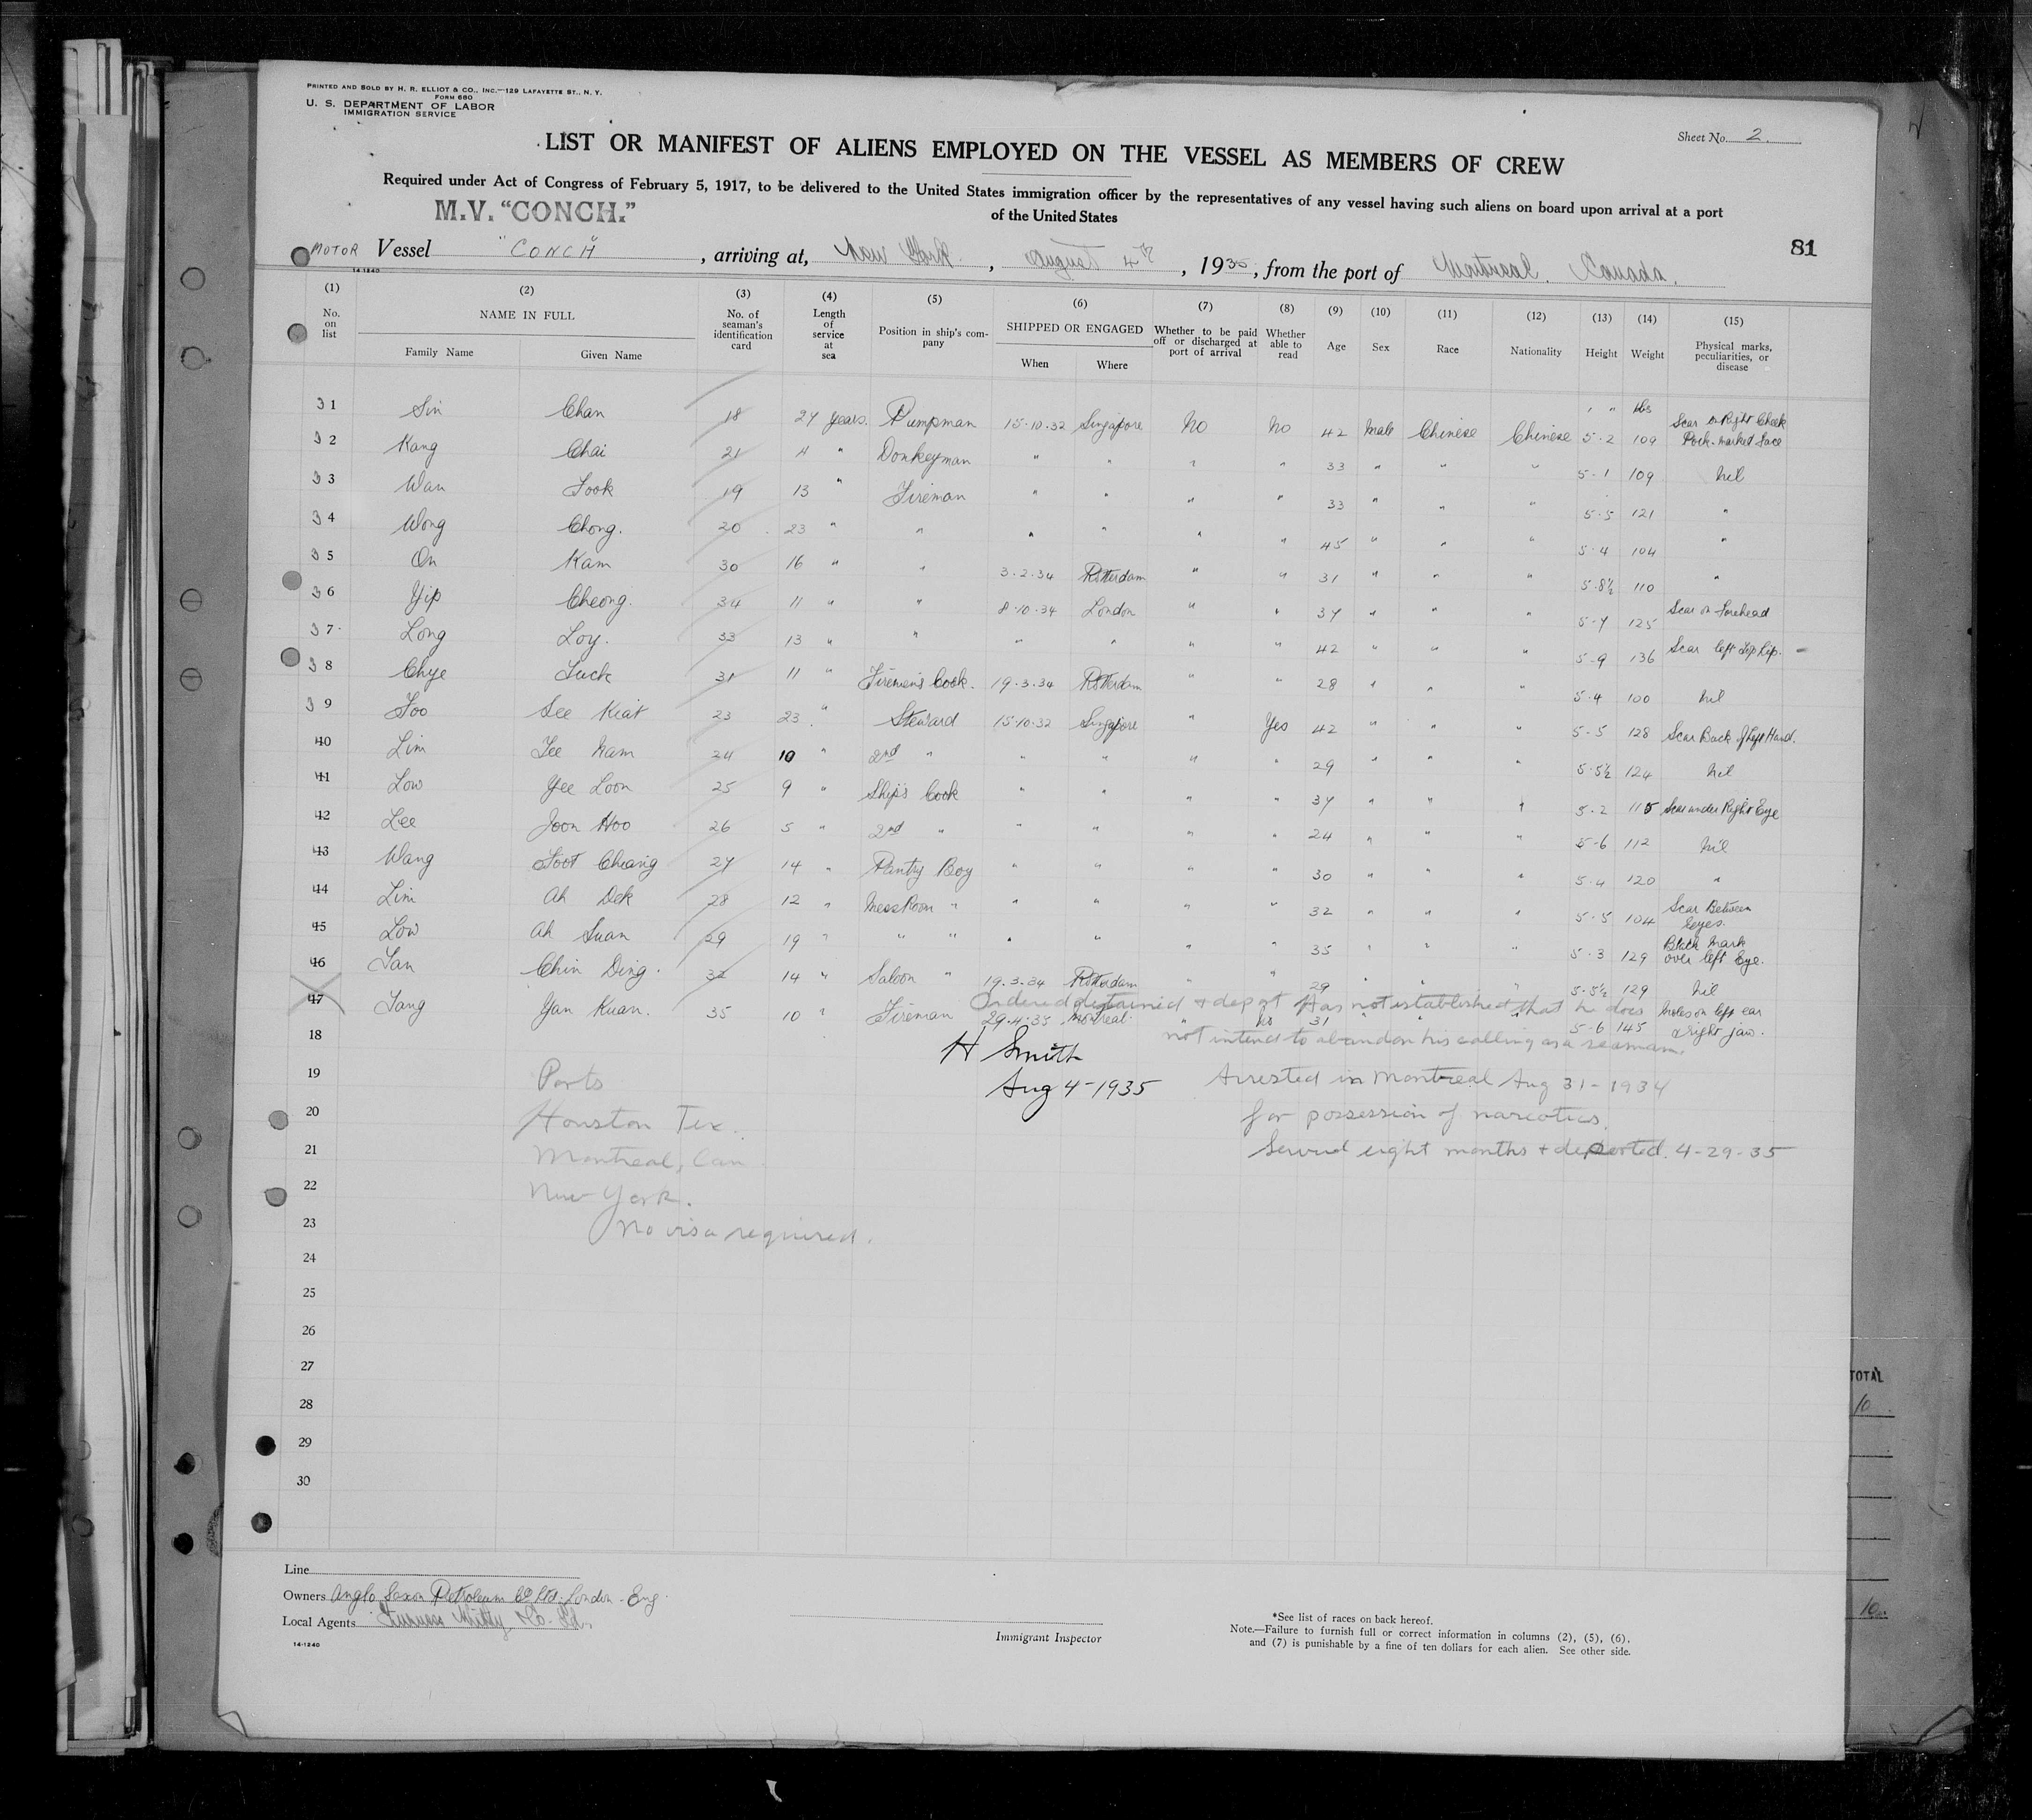 PRINTED AND SOLD BY H. R. ELLIOT & CO., INC.—129 LAFAYETTE ST., N. Y.
FORM 680
U. S. DEPARTMENT OF LABOR
IMMIGRATION SERVICE
Sheet No. 2.
LIST OR MANIFEST OF ALIENS EMPLOYED ON THE VESSEL AS MEMBERS OF CREW
Required under Act of Congress of February 5, 1917, to be delivered to the United States immigration officer by the representatives of any vessel having such aliens on board upon arrival at a port
of the United States
M.V. "CONCH."
81
MOTOR Vessel "CONCH", arriving at, New York, August 4th, 1935, from the port of Montreal. Canada.
14-1240
(1) (2) (3) (4) (5) (6) (7) (8) (9) (10) (11) (12) (13) (14) (15)
No. on list NAME IN FULL Family Name Given Name No. of seaman's identification card Length of service at sea Position in ship's company SHIPPED OR ENGAGED When Where Whether to be paid off or discharged at port of arrival Whether able to read Age Sex Race Nationality Height Weight Physical marks, peculiarities, or disease
31 Sin Chan 18 27 years. Pumpman 15-10-32 Singapore No No 42 Male Chinese Chinese ' " 5-2 lbs 109 Scar on Right Cheek Pock-marked face
32 Kang Chai 21 " Donkeyman " " " " 33 " " " 5-1 109 Nil
33 Wan Fook 19 13 " Fireman " " " " 33 " " " 5-5 121 "
34 Wong Chong. 20 23 " " " " " " 45 " " " 5-4 104 "
35 On Kam 30 16 " " 3-2-34 Rotterdam " " 31 " " " 5-8½ 110 "
36 Yip Cheong. 34 11 " " 8-10-34 London " " 37 " " " 5-7 125 Scar on Forehead
37 Long Loy. 33 13 " " " " " " 42 " " " 5-9 136 Scar left Top Lip.
38 Chye Luck 31 11 " Firemen's Cook. 19-3-34 Rotterdam " " 28 " " " 5-4 100 Nil
39 Foo See Kiat 23 23 " Steward 15-10-32 Singapore " Yes 42 " " " 5-5 128 Scar Back of Left Hand.
40 Lim Tee Nam 24 10 " 2nd " " " " " 29 " " " 5-5½ 124 Nil
41 Low Yee Loon 25 9 " Ship's Cook " " " " 37 " " " 5-2 115 Scar under Right Eye
42 Lee Joon Hoo 26 5 " 2nd " " " " " 24 " " " 5-6 112 Nil
43 Wang Foot Chiang 27 14 " Pantry Boy " " " " 30 " " " 5-4 120 "
44 Lim Ah Dek 28 12 " Mess Room " " " " " 32 " " " 5-5 104 Scar Between Eyes.
45 Low Ah Suan 29 19 " " " " " " " 35 " " " 5-3 129 Black Mark over left Eye.
46 Tan Chin Ding. 32 14 " Saloon " 19-3-34 Rotterdam " " 29 " " " 5-5½ 129 Nil
Ordered detained & deport Has not established that he does
47 Tang Yan Kuan. 35 10 " Fireman 29-4-35 Montreal. " No 31 " " " 5-6 145 Moles on left ear & right jaw.
not intend to abandon his calling as a seaman.
18
H Smith
19
Ports
Aug 4-1935
Arrested in Montreal Aug 31-1934
20
Houston Tex.
for possession of narcotics.
21
Montreal, Can.
Served eight months & deported. 4-29-35
22
New York.
23
No visa required.
24
25
26
27
28
29
30
TOTAL
10
10
Line
Owners Anglo Saxon Petroleum Co Ltd. London - Eng
Local Agents Furness Withy & Co. Ltd.
14-1240
Immigrant Inspector
*See list of races on back hereof.
Note.—Failure to furnish full or correct information in columns (2), (5), (6),
and (7) is punishable by a fine of ten dollars for each alien. See other side.